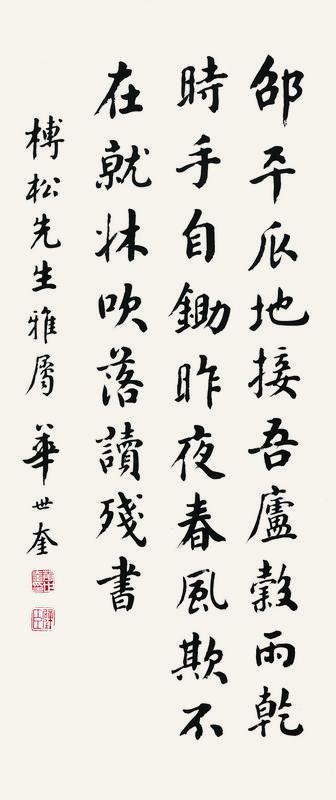 邵平瓜地接吾廬穀雨乾
時手自鋤昨夜春風欺不
在就牀吹落讀殘書
榑松先生雅屬 華世奎